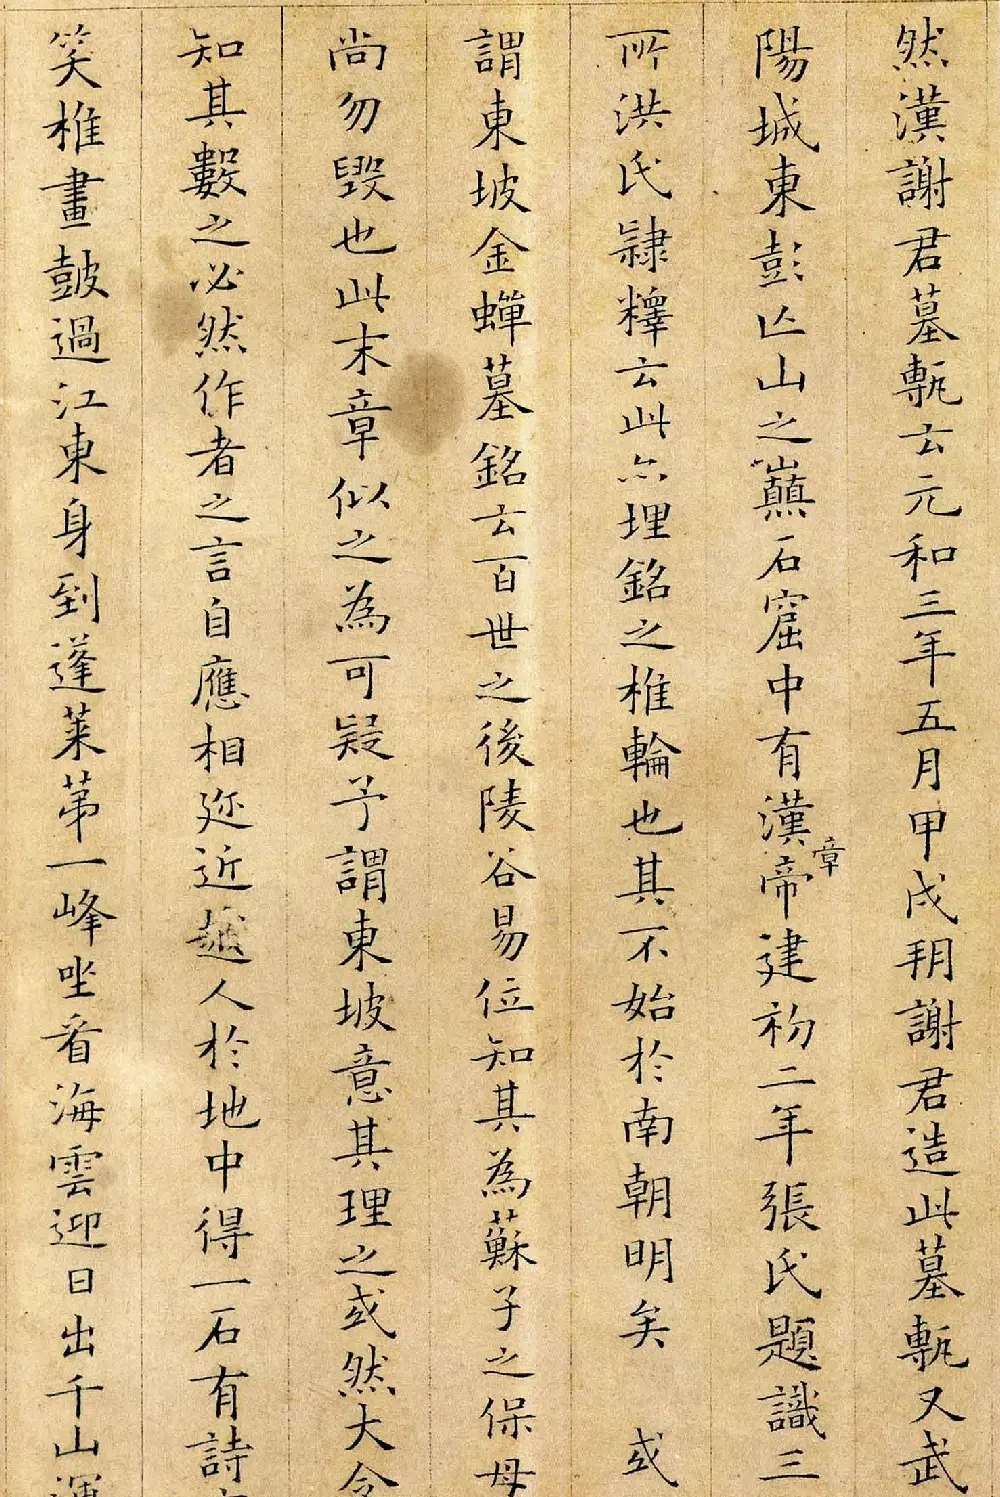 然漢謝君墓甎云元和三年五月甲戌朔謝君造此墓甎又武
陽城東彭亾山之巔石窟中有漢章帝建初二年張氏題識三
所洪氏隸釋云此亦埋銘之椎輪也其不始於南朝明矣 或
謂東坡金蟬墓銘云百世之後陵谷易位知其為蘇子之保母
尚勿毀也此末章似之為可疑予謂東坡意其理之或然大令
知其數之必然作者之言自應相邇近越人於地中得一石有詩
笑椎畫鼓過江東身到蓬萊第一峰坐看海雲迎日出千山